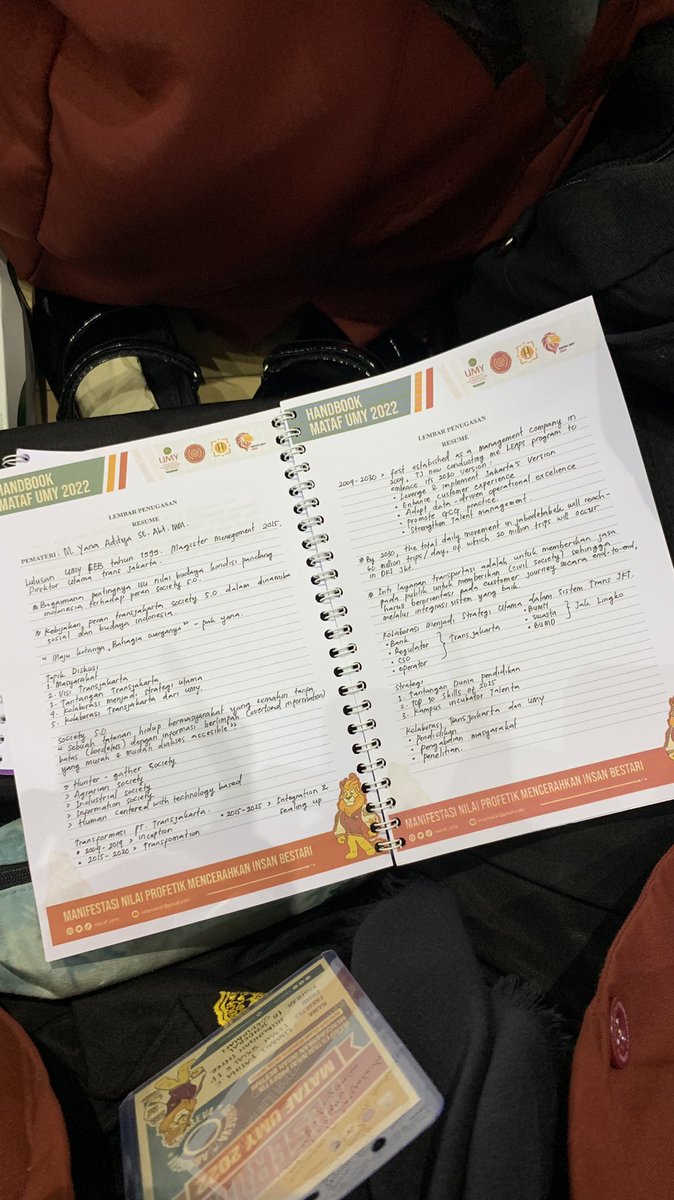 HANDBOOK
MATAF UMY 2022
UMY
LEMBAR PENUGASAN
RESUME
PEMATERI : M. Yana Aditya SE. Akt. MM.
Lulusan UMY FEB tahun 1999. Magister Management 2015.
Direktur utama trans Jakarta.
* Bagaimana pentingnya isu nilai budaya kondisi pandang
indonesia terhadap peran society 5.0.
* Kebijakan, peran transjakarta society 5.0 dalam dinamika
sosial dan budaya indonesia.
" Maju kotanya, Bahagia warganya " - pak yana.
Topik Diskusi
1. Masyarakat
2. Visi Transjakarta
3. Tantangan Transjakarta
4. Kolaborasi menjadi strategi utama
5. kolaborasi Transjakarta dari UMY.
Society 5.0
" sebuah tatanan, hidup bermasyarakat yang semakin tanpa
batas (bordeless) dengan informasi berlimpah (overloned information)
yang murah & mudah diakses accesible "
> Hunter - gather Society
> Agrarian society
> Industrial society
> Information society
> Human centered with technology based
Transformasi PT. Transjakarta.
• 2004 - 2014 > inception
• 2015 - 2020 > Transfomation
• 2015-2025 > Integration &
scaling up
MANIFESTASI NILAI PROFETIK MENCERAHKAN INSAN BESTARI
mataf_umy
HANDBOOK
MATAF UMY 2022
UMY
LEMBAR PENUGASAN
RESUME
2009-2030 > first estabished as a management company in
2004, TJ now conducting me LEAPS program to
embrace its 2030 version
• Leverge & implement Jakarta's version
• Enhance customer experience
• Adopt data-driven operational excelience
• Promote GCG practice.
• Strengthen Talent management.
* By 2030, the total daily movement in jabodetabek will reach-
60 million trips/day. of which 20 million trips will occur
in DKI Jkt.
* Inti layanan transportasi adalah untuk memberikan jasa
pada publik untuk memberikan (civil society) sehingga
harus berorientasi pada customer journey secara end-to-end,
melalui integrasi sistem yang baik.
Kolaborasi menjadi Strategi Utama dalam Sistem Trans JKT.
• Bank
• Regulator
• CSO
• operator
Transjakarta
• BUMN
• swasta
• BUMD
Jak Lingko
Strategi
1. Tantangan Dunia pendidikan
2. Top 10 skills of 2025
3. Kampus incubator Talenta
Kolaborasi Transjakarta dan UMY
• Pendidikan
• pengabdian masyarakat
• penelitian.
MANIFESTASI NILAI PROFETIK MENCERAHKAN INSAN BESTARI
mataf_umy
MATAF UMY 2022